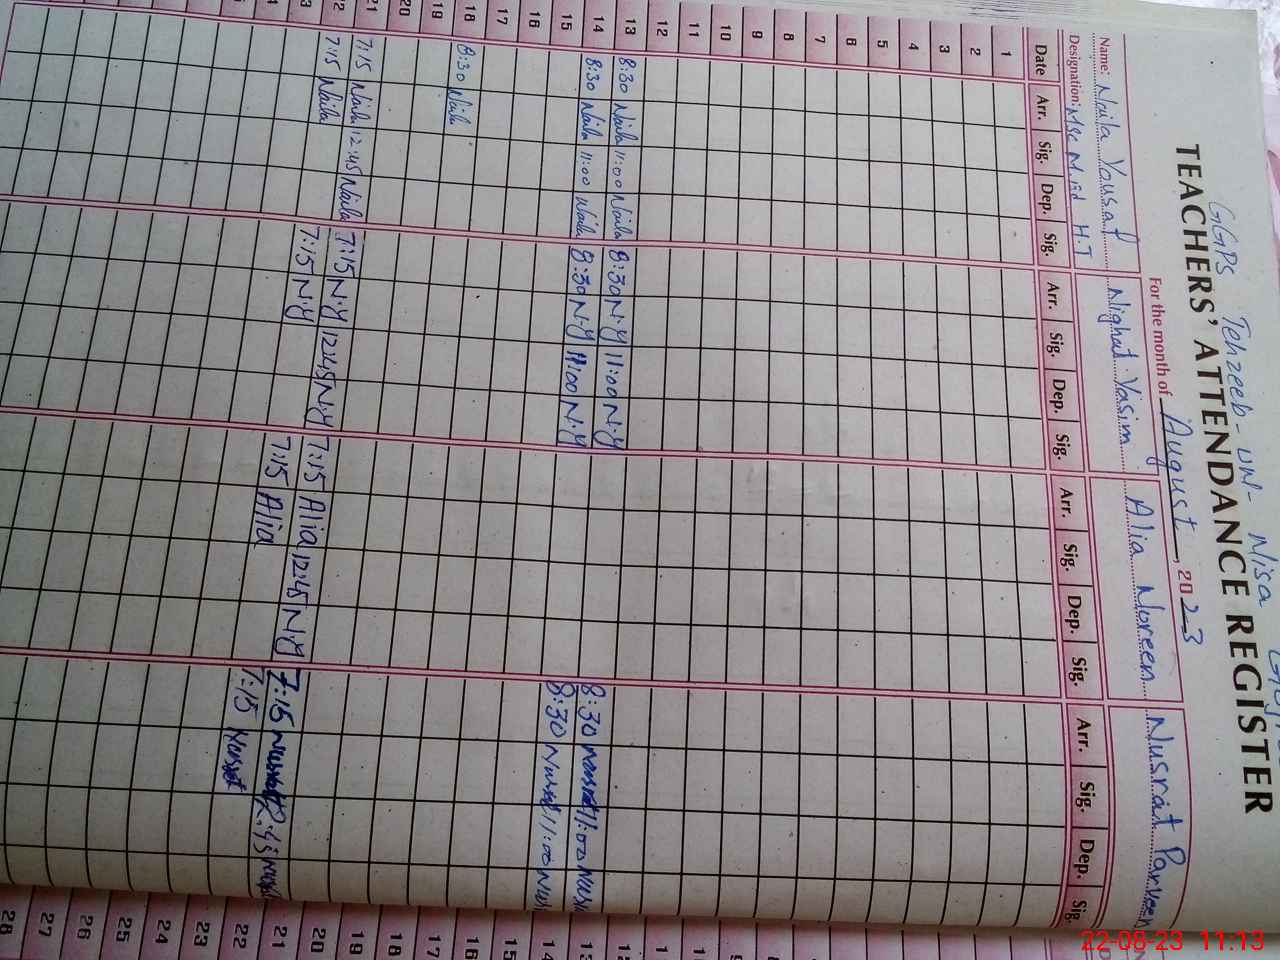 GGPS Tehzeeb-un-Nisa
TEACHERS' ATTENDANCE REGISTER
For the month of August, 2023
Name: Naila Yousaf Nighat Yasim Alia Noreen Nusrat Parveen
Designation: MSc M.ed H.T
Date Arr. Sig. Dep. Sig. Arr. Sig. Dep. Sig. Arr. Sig. Dep. Sig. Arr. Sig. Dep. Sig.
1
2
3
4
5
6
7
8
9
10
11
12
13 8:30 Naila 11:00 Naila 8:30 N.Y 11:00 N.Y 8:30 11:00
14 8:30 Naila 11:00 Naila 8:30 N.Y 11:00 N.Y 8:30 11:00
15
16
17
18 8:30 Naila
19
20
21 7:15 Naila 12:45 Naila 7:15 N.Y 12:45 N.Y 7:15 Alia 12:45 N.Y 7:15
22 7:15 Naila 7:15 N.Y 7:15 Alia 7:15
14
15
16
17
18
19
20
21
22
23
24
25
26
27
28
22-08-23 11:13